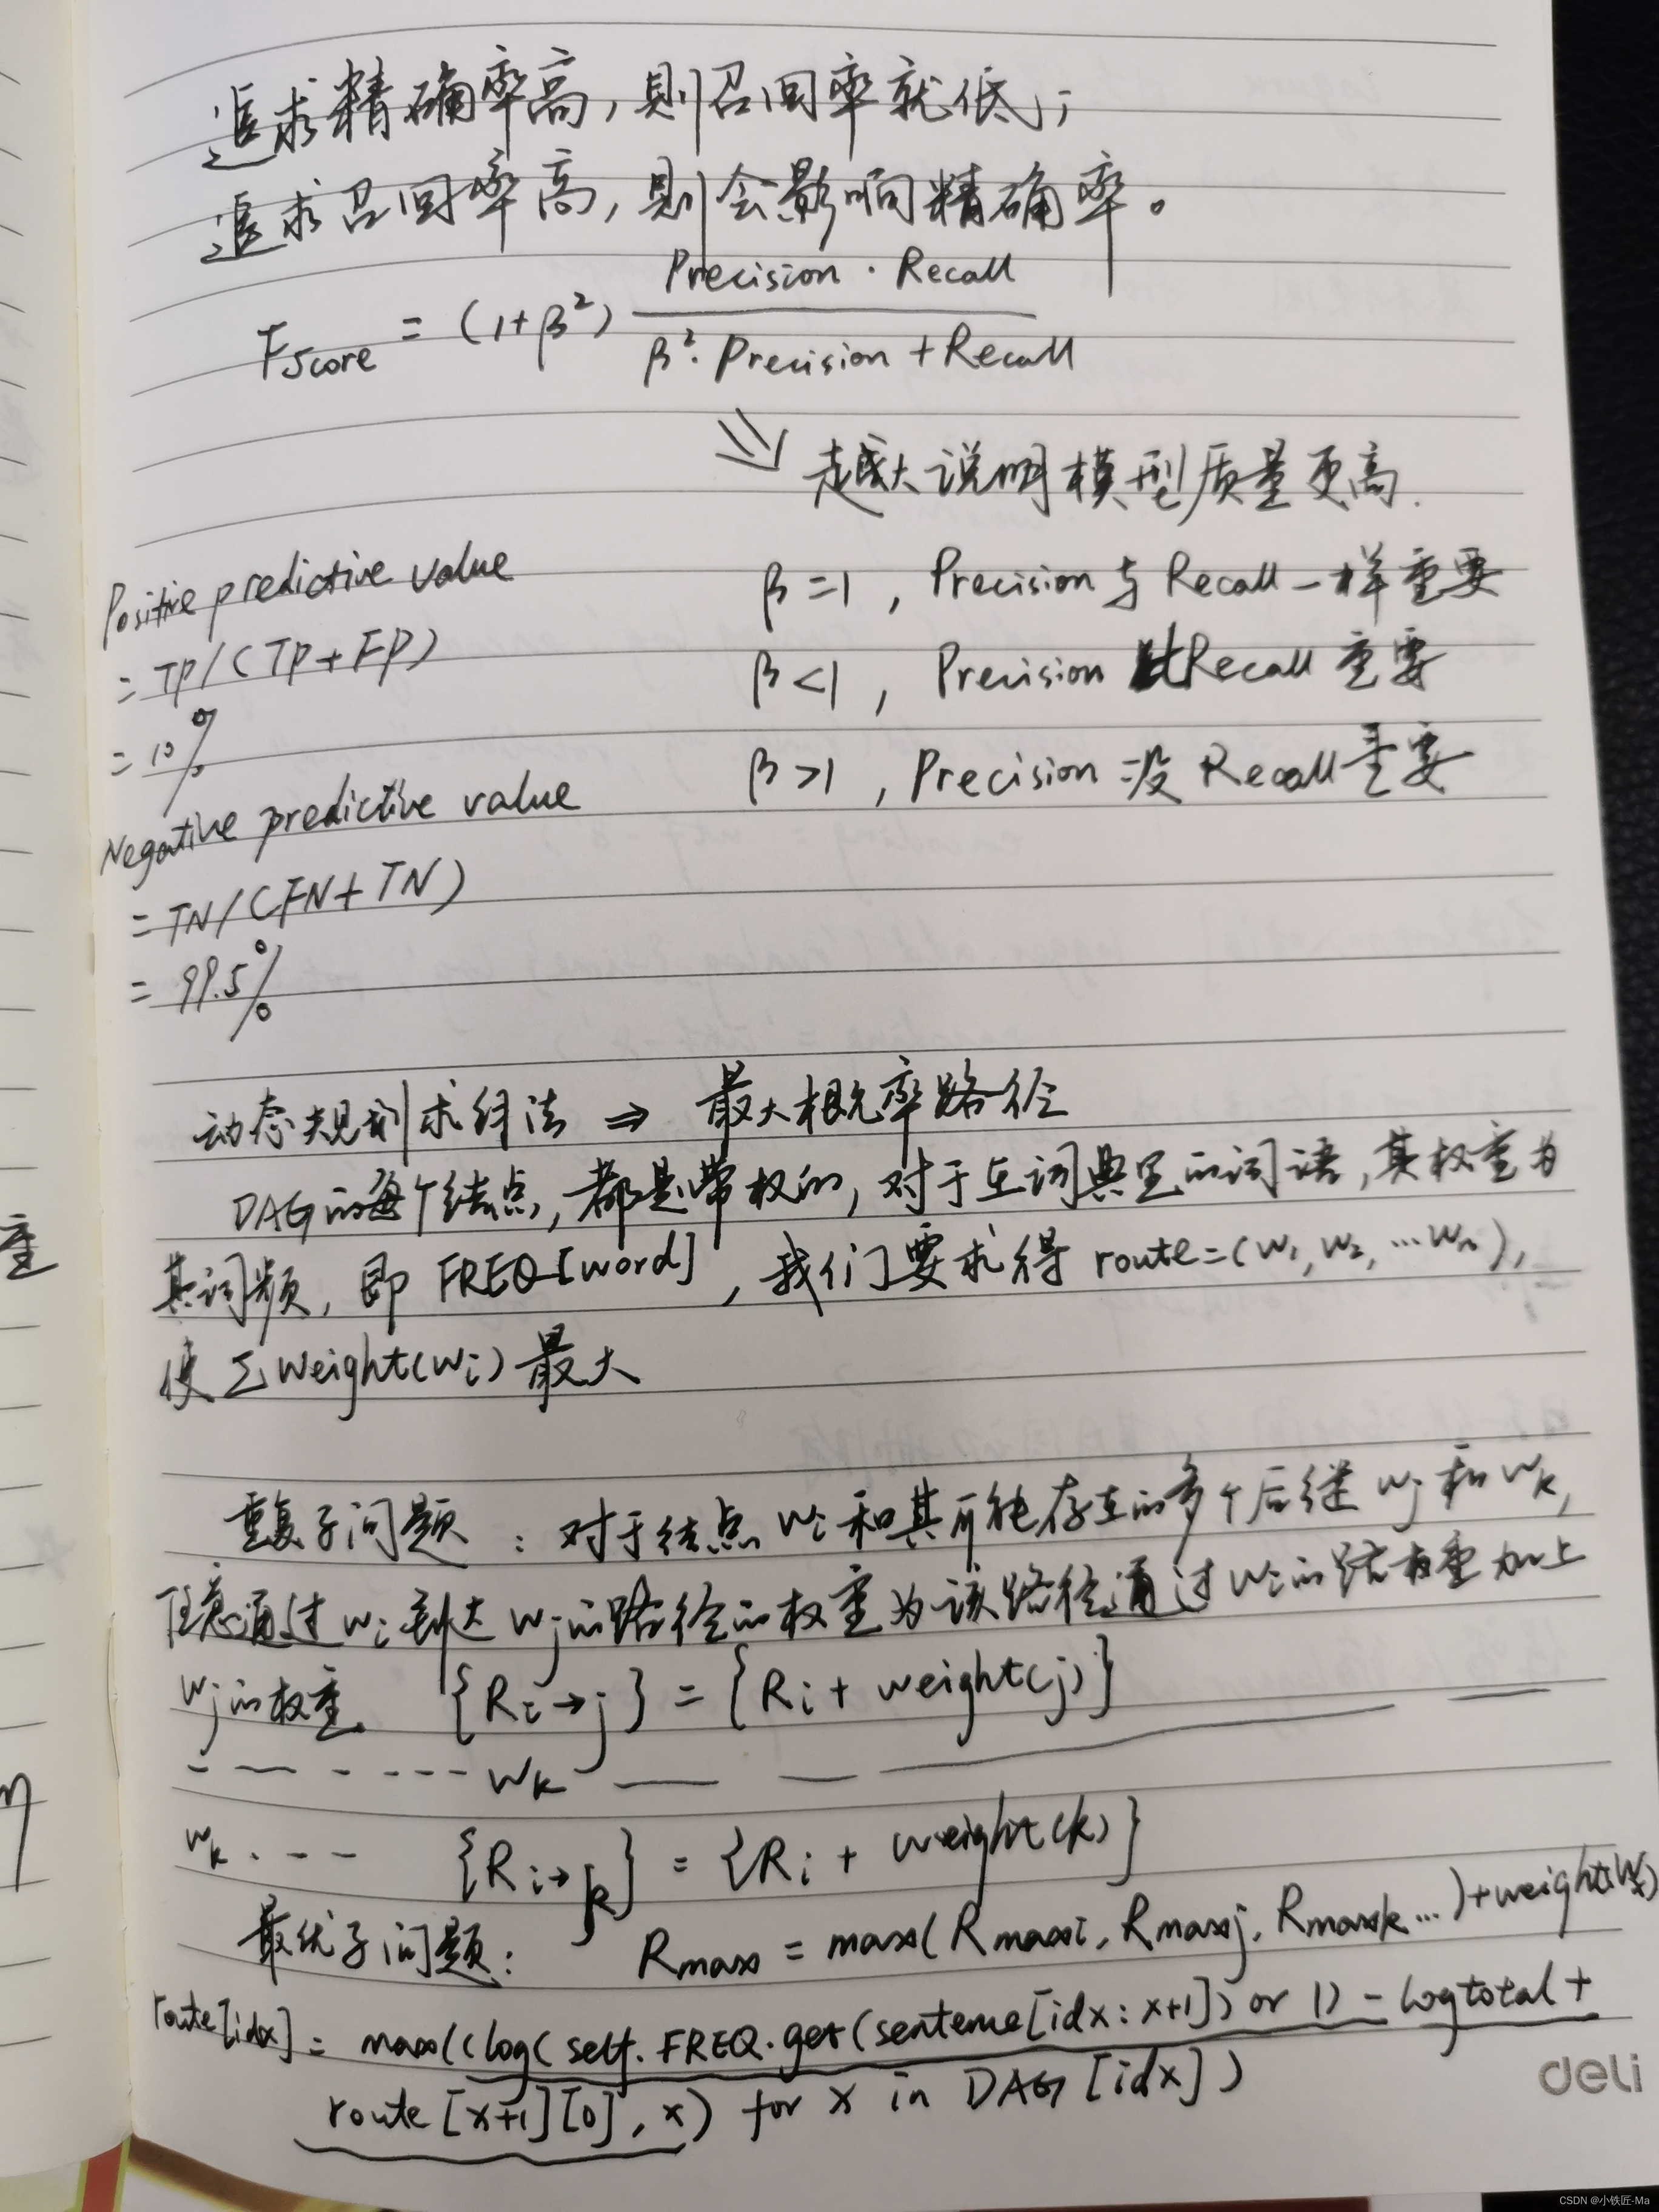 追求精确率高，则召回率就低；
追求召回率高，则会影响精确率。
Fscore = (1+β²) Precision · Recall / β²· Precision + Recall
⇒ 越大说明模型质量更高.
Positive predictive value
= TP/(TP+FP)
= 10%
Negative predictive value
= TN/(FN+TN)
= 99.5%
β=1, Precision与Recall一样重要
β<1, Precision比Recall重要
β>1, Precision没Recall重要
动态规划求解法 ⇒ 最大概率路径
DAG的每个结点,都是带权的,对于在词典里的词语,其权重为
其词频, 即 FREQ[word], 我们要求得 route=(w1,w2,…wn),
使 Σweight(wi) 最大
重复子问题 : 对于结点wi和其可能存在的多个后继wj和wk,
任意通过wi到达wj的路径的权重为该路径通过wi的路径权重加上
wj的权重 {Ri→j} = {Ri + weight(j)}
wk
wk · -- {Ri→k} = {Ri + weight(k)}
最优子问题: Rmax = max(Rmaxi, Rmaxj, Rmaxk…)+weight(wx)
route[idx] = max((log(self.FREQ.get(sentence[idx:x+1]) or 1) - logtotal +
route[x+1][0], x) for x in DAG[idx])
deli
CSDN @小铁匠-Ma